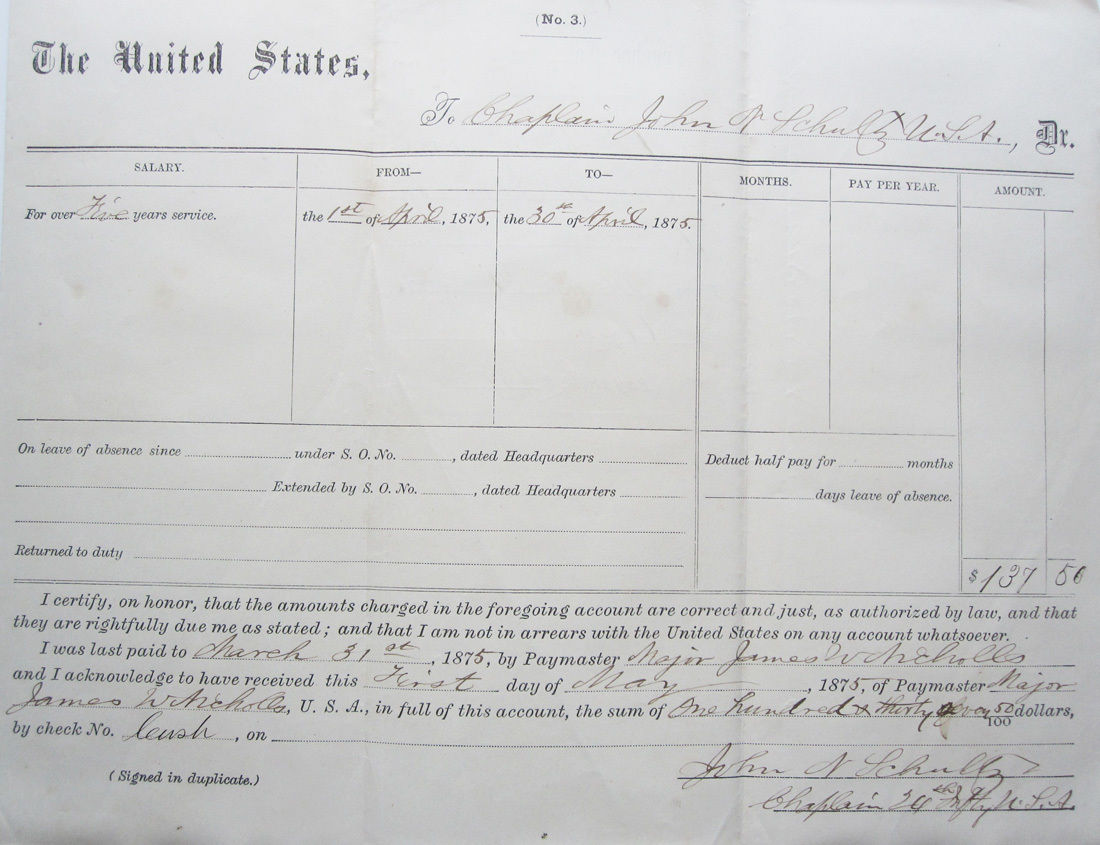 (No. 3.)
The United States,
To Chaplain John N Schultz U.S.A., Dr.
SALARY. FROM— TO— MONTHS. PAY PER YEAR. AMOUNT.
For over Five years service. the 1st of April, 1875, the 30th of April, 1875.
On leave of absence since under S. O. No. , dated Headquarters
Deduct half pay for months
Extended by S. O. No. , dated Headquarters
days leave of absence.
Returned to duty
$ 137 50
I certify, on honor, that the amounts charged in the foregoing account are correct and just, as authorized by law, and that
they are rightfully due me as stated; and that I am not in arrears with the United States on any account whatsoever.
I was last paid to March 31st, 1875, by Paymaster Major James W Nicholls
and I acknowledge to have received this First day of May, 1875, of Paymaster Major
James W Nicholls, U. S. A., in full of this account, the sum of One hundred & thirty seven 50/100 dollars,
by check No. Cash, on
(Signed in duplicate.)
John N Schultz
Chaplain 24th Infty U.S.A.